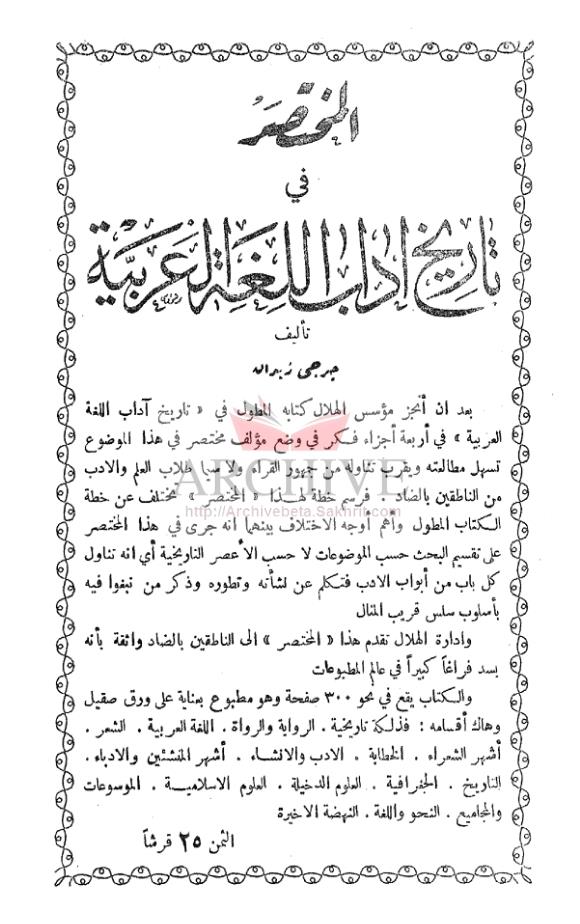 المختصر
في
تاريخ اداب اللغة العربية
تأليف
جرجي زيدان
بعد ان أنجز مؤسس الهلال كتابه المطول في « تاريخ آداب اللغة
العربية » في أربعة أجزاء فكر في وضع مؤلف مختصر في هذا الموضوع
تسهل مطالعته ويقرب تناوله من جمهور القراء ولا سيما طلاب العلم والادب
ARCHIVE
من الناطقين بالضاد . فرسم خطة لهذا « المختصر » تختلف عن خطة
http://Archivebeta.Sakhrit.com
الكتاب المطول وأهم أوجه الاختلاف بينهما انه جرى في هذا المختصر
على تقسيم البحث حسب الموضوعات لا حسب الأعصر التاريخية أي انه تناول
كل باب من أبواب الادب فتكلم عن نشأته وتطوره وذكر من نبغوا فيه
بأسلوب سلس قريب المنال
وادارة الهلال تقدم هذا « المختصر » الى الناطقين بالضاد واثقة بأنه
يسد فراغاً كبيراً في عالم المطبوعات
والكتاب يقع في نحو ٣٠٠ صفحة وهو مطبوع بعناية على ورق صقيل
وهاك أقسامه : فذلكة تاريخية . الرواية والرواة . اللغة العربية . الشعر .
أشهر الشعراء . الخطابة . الادب والانشاء . أشهر المنشئين والادباء .
التاريخ . الجغرافية . العلوم الدخيلة . العلوم الاسلامية . الموسوعات
والمجاميع . النحو واللغة . النهضة الاخيرة
الثمن ٢٥ قرشاً